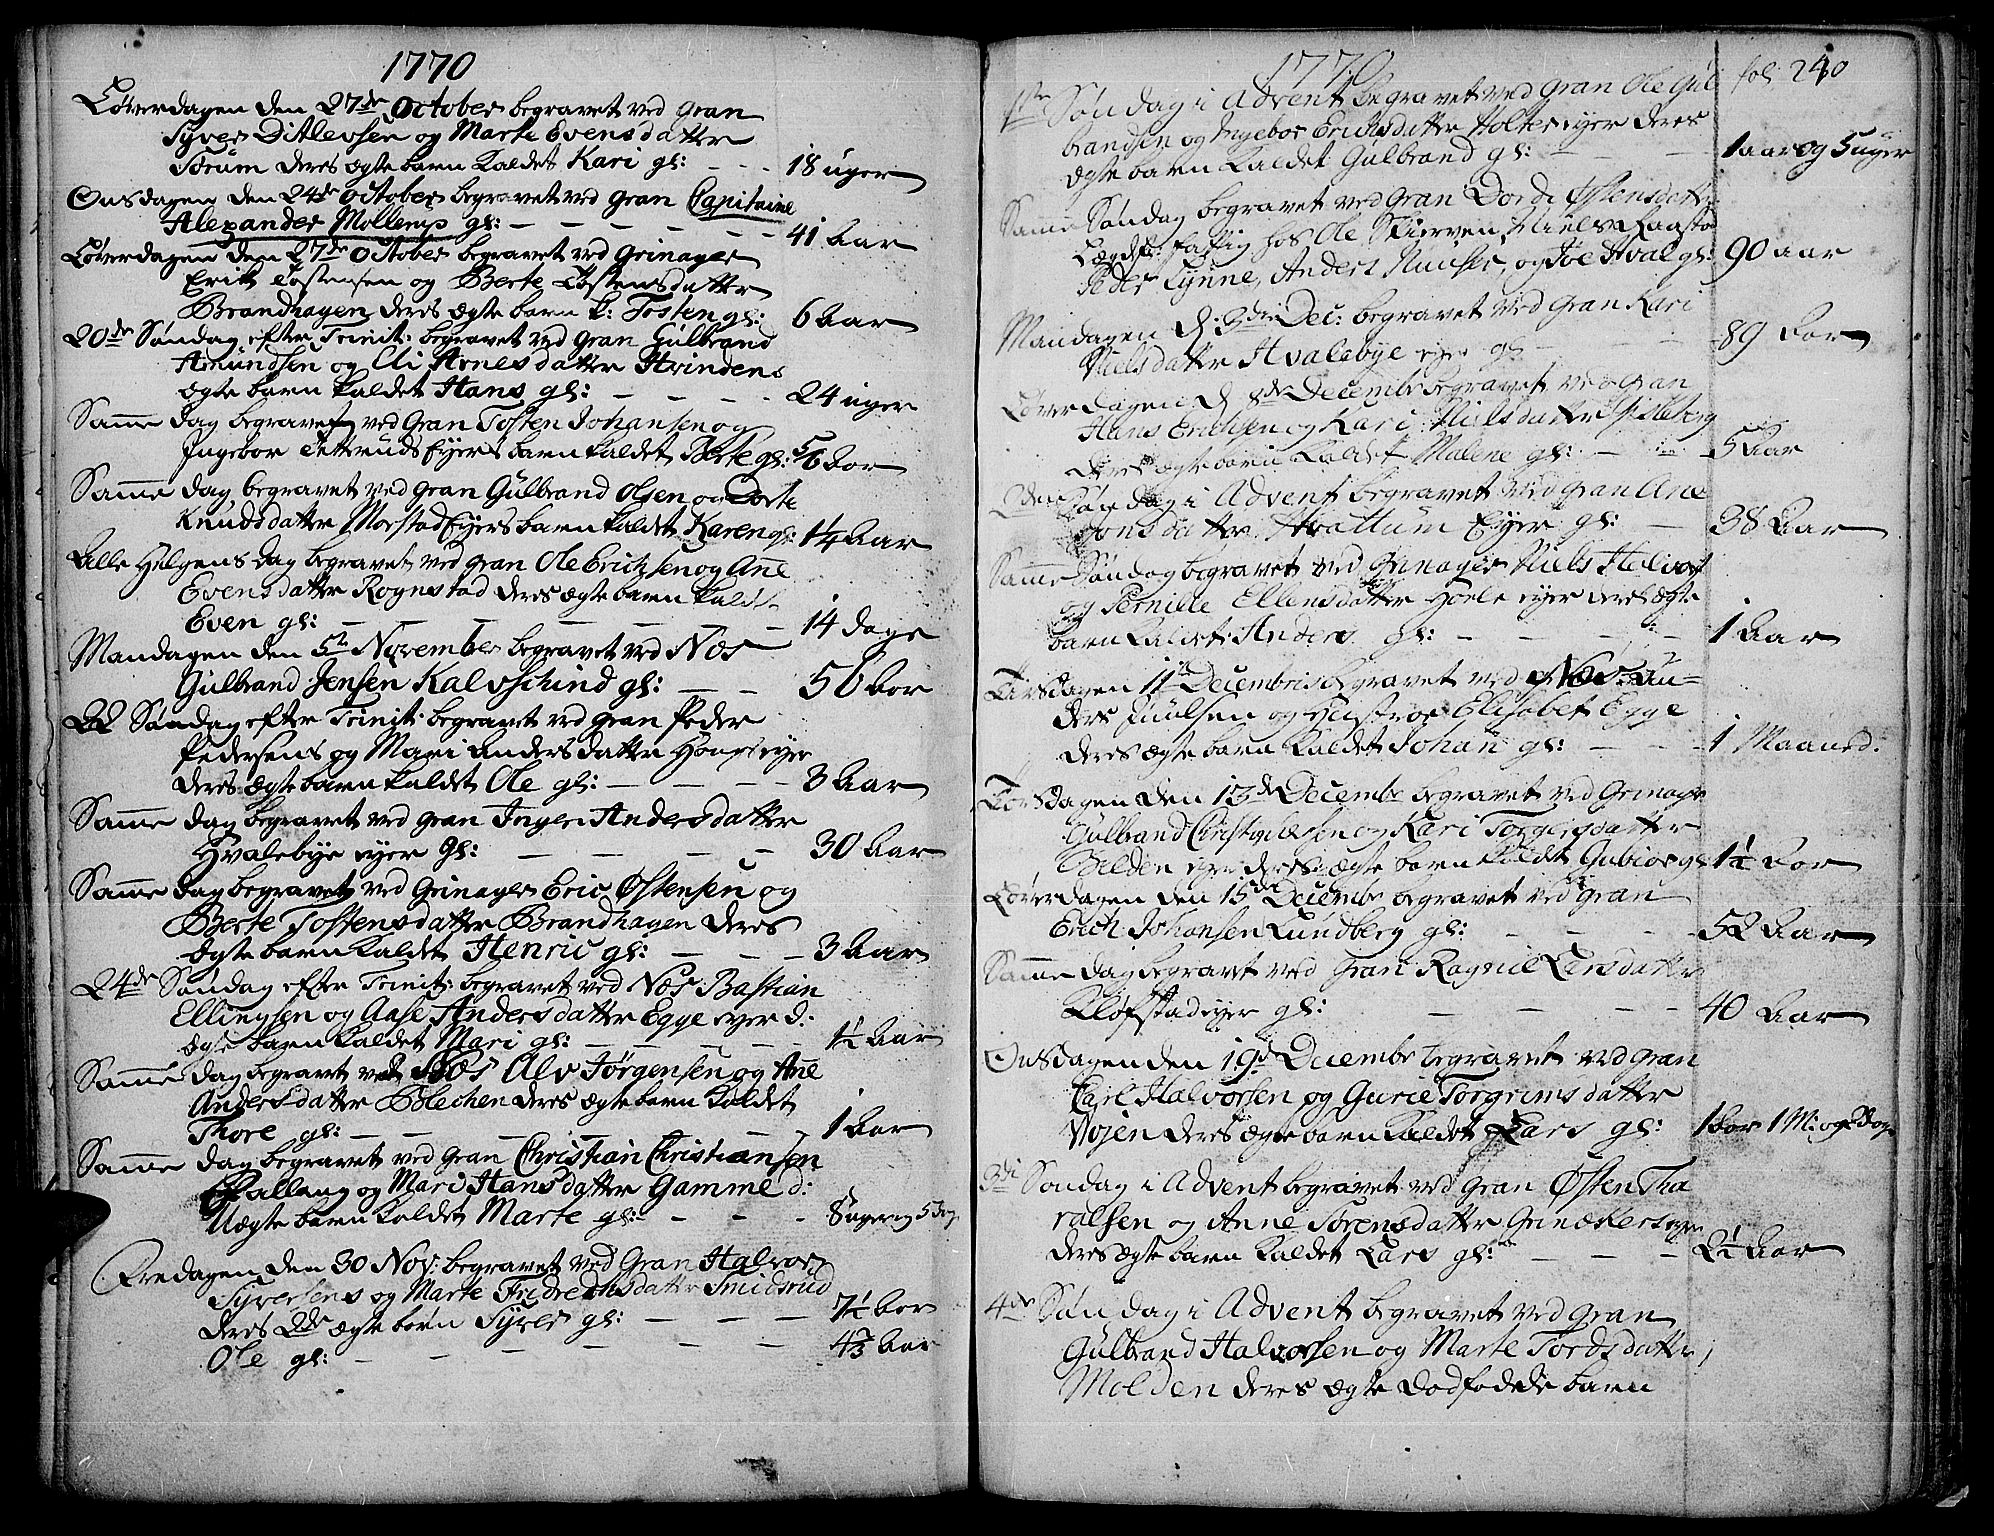 1770
Löverdagen den 27de October begravet ved Gran
Syver Ditlevsen og Marte Evensdatter
Sorum deres ægte barn kaldet Kari gl: 18 uger
Onsdagen den 24de October begravet ved Gran Capitaine
Alexander Mollerup gl: 41 Aar
Löverdagen den 27de October begravet ved Grinager
Erik Tostensen og Berte Tostensdatter
Brandhagen deres ægte barn k: Tosten gl: 6 Aar
20de Søndag efter Trinit: begravet ved Gran Gulbrand
Amundsen og Eli Arnesdatter Hvindens
ægte barn kaldet Hans gl: 24 uger
Samme dag begravet ved Gran Tosten Johansen og
Ingebor Tetteruds Eyers barn kaldet Berte gl: 5/6 Aar
Samme dag begravet ved Gran Gulbrand Olsen og Dorte
Knudsdatter Morstad Eyers barn kaldet Karen gl: 1 1/4 Aar
Alle Helgens Dag begravet ved Gran Ole Erichsen og Ane
Evensdatter Rognstad deres ægte barn kaldt
Even gl: 14 dage
Mandagen den 5te November begravet ved Næs
Gulbrand Jensen Kalvschind gl: 56 Aar
22 Søndag efter Trinit: begravet ved Gran Peder
Pedersens og Mari Andersdatter Hongs eyer
deres ægte barn kaldet Ole gl: 3 Aar
Samme dag begravet ved Gran Inger Andersdatter
Hvalebye eyer gl: 30 Aar
Samme dag begravet ved Grinager Eric Østensen og
Berte Tostensdatter Brandhagen deres
ægte barn kaldet Henric gl: 3 Aar
24de Søndag efter Trinit: begravet ved Næs Bastian
Ellingsen og Aase Andersdatter Egge eyer d:
ægte barn kaldet Mari gl: 1 1/2 Aar
Samme dag begravt ved Næs Alv Jörgensen og Ane
Andersdatter Blechen deres ægte barn kaldet
Thore gl: 1 Aar
Samme dag begravet ved Gran Christian Christiansen
Pallang og Mari Hansdatter Gamme d:
Uægte barn kaldet Marte gl: 8 uger og 5 Dag
Fredagen den 30 Nov: begravet ved Gran Halvor
Syversens og Marte Fredrechsdatter Smidsrud
deres 2de ægte børn Syver gl: 7 1/2 Aar
Ole gl: 4 2/3 Aar
1770 fol: 240
1ste Søndag i Advent begravet ved Gran Ole Gul
brandsen og Ingebor Erichsdatter Holter eyer deres
ægte barn kaldet Gulbrand gl: 1 aar og 5 uger
Samme Søndag begravet ved Gran Dorde Østensdatter
Lægds fattig hos Ole Skierven, Niels Raasto
Peder Lynne, Anders, og Joe Hval gl: 90 aar
Mandagen d: 3die Dec: begravet ved Gran Kari
Nielsdatter Hvalebye eyer gl: 89 Aar
Löverdagen d 8de Decembr begravet ved Gran
Hans Erichsen og Kari Nielsdatter
deres ægte barn kaldet Malene gl: 5 Aar
2den Søndag i Advent begravet ved Gran Ane
Jonsdatter Hvattum Eyer gl: 38 Aar
Samme Søndag begravet ved Grinager Niels Halvors
og Pernille Ellensdatter Hoele eyer deres ægte
barn kaldet Anders gl: 1 Aar
Tirsdagen 11te Decembris begravet ved Næs An=
ders Juulsen og Hustroe Elisabet Egge
deres ægte barn kaldet Johan gl: 1 Maaned.
Torsdagen den 13de Decembr begravet ved Grinager
Gulbrand Christophersen og Kari Torgersdatter
Belden eyer deres ægte barn kaldet Gubior gl 1 1/2 Aar
Löverdagen den 15de Decembr begravet ved Gran
Erich Johansen Lundberg gl: 52 Aar
Samme dag begravt ved Gran Ragnil Larsdatter
Kløfstad eyer gl: 40 Aar
Onsdagen den 19de Decembr begravet ved Gran
Carl Halvorsen og Gurie Torgrimsdatter
Vøjen deres ægte barn kaldet Lars gl: 1 Aar 1 M: og Dage
3di Søndag i Advent begravet ved Gran Østen Tha
ralsen og Anne Sörensdatter Grinakers eyer
deres ægte barn kaldet Lars gl: 2 1/2 Aar
4de Søndag i Advent begravet ved Gran
Gulbrand Halvorsen og Marte Tordsdatter
Molden deres ægte Dødfødde barn